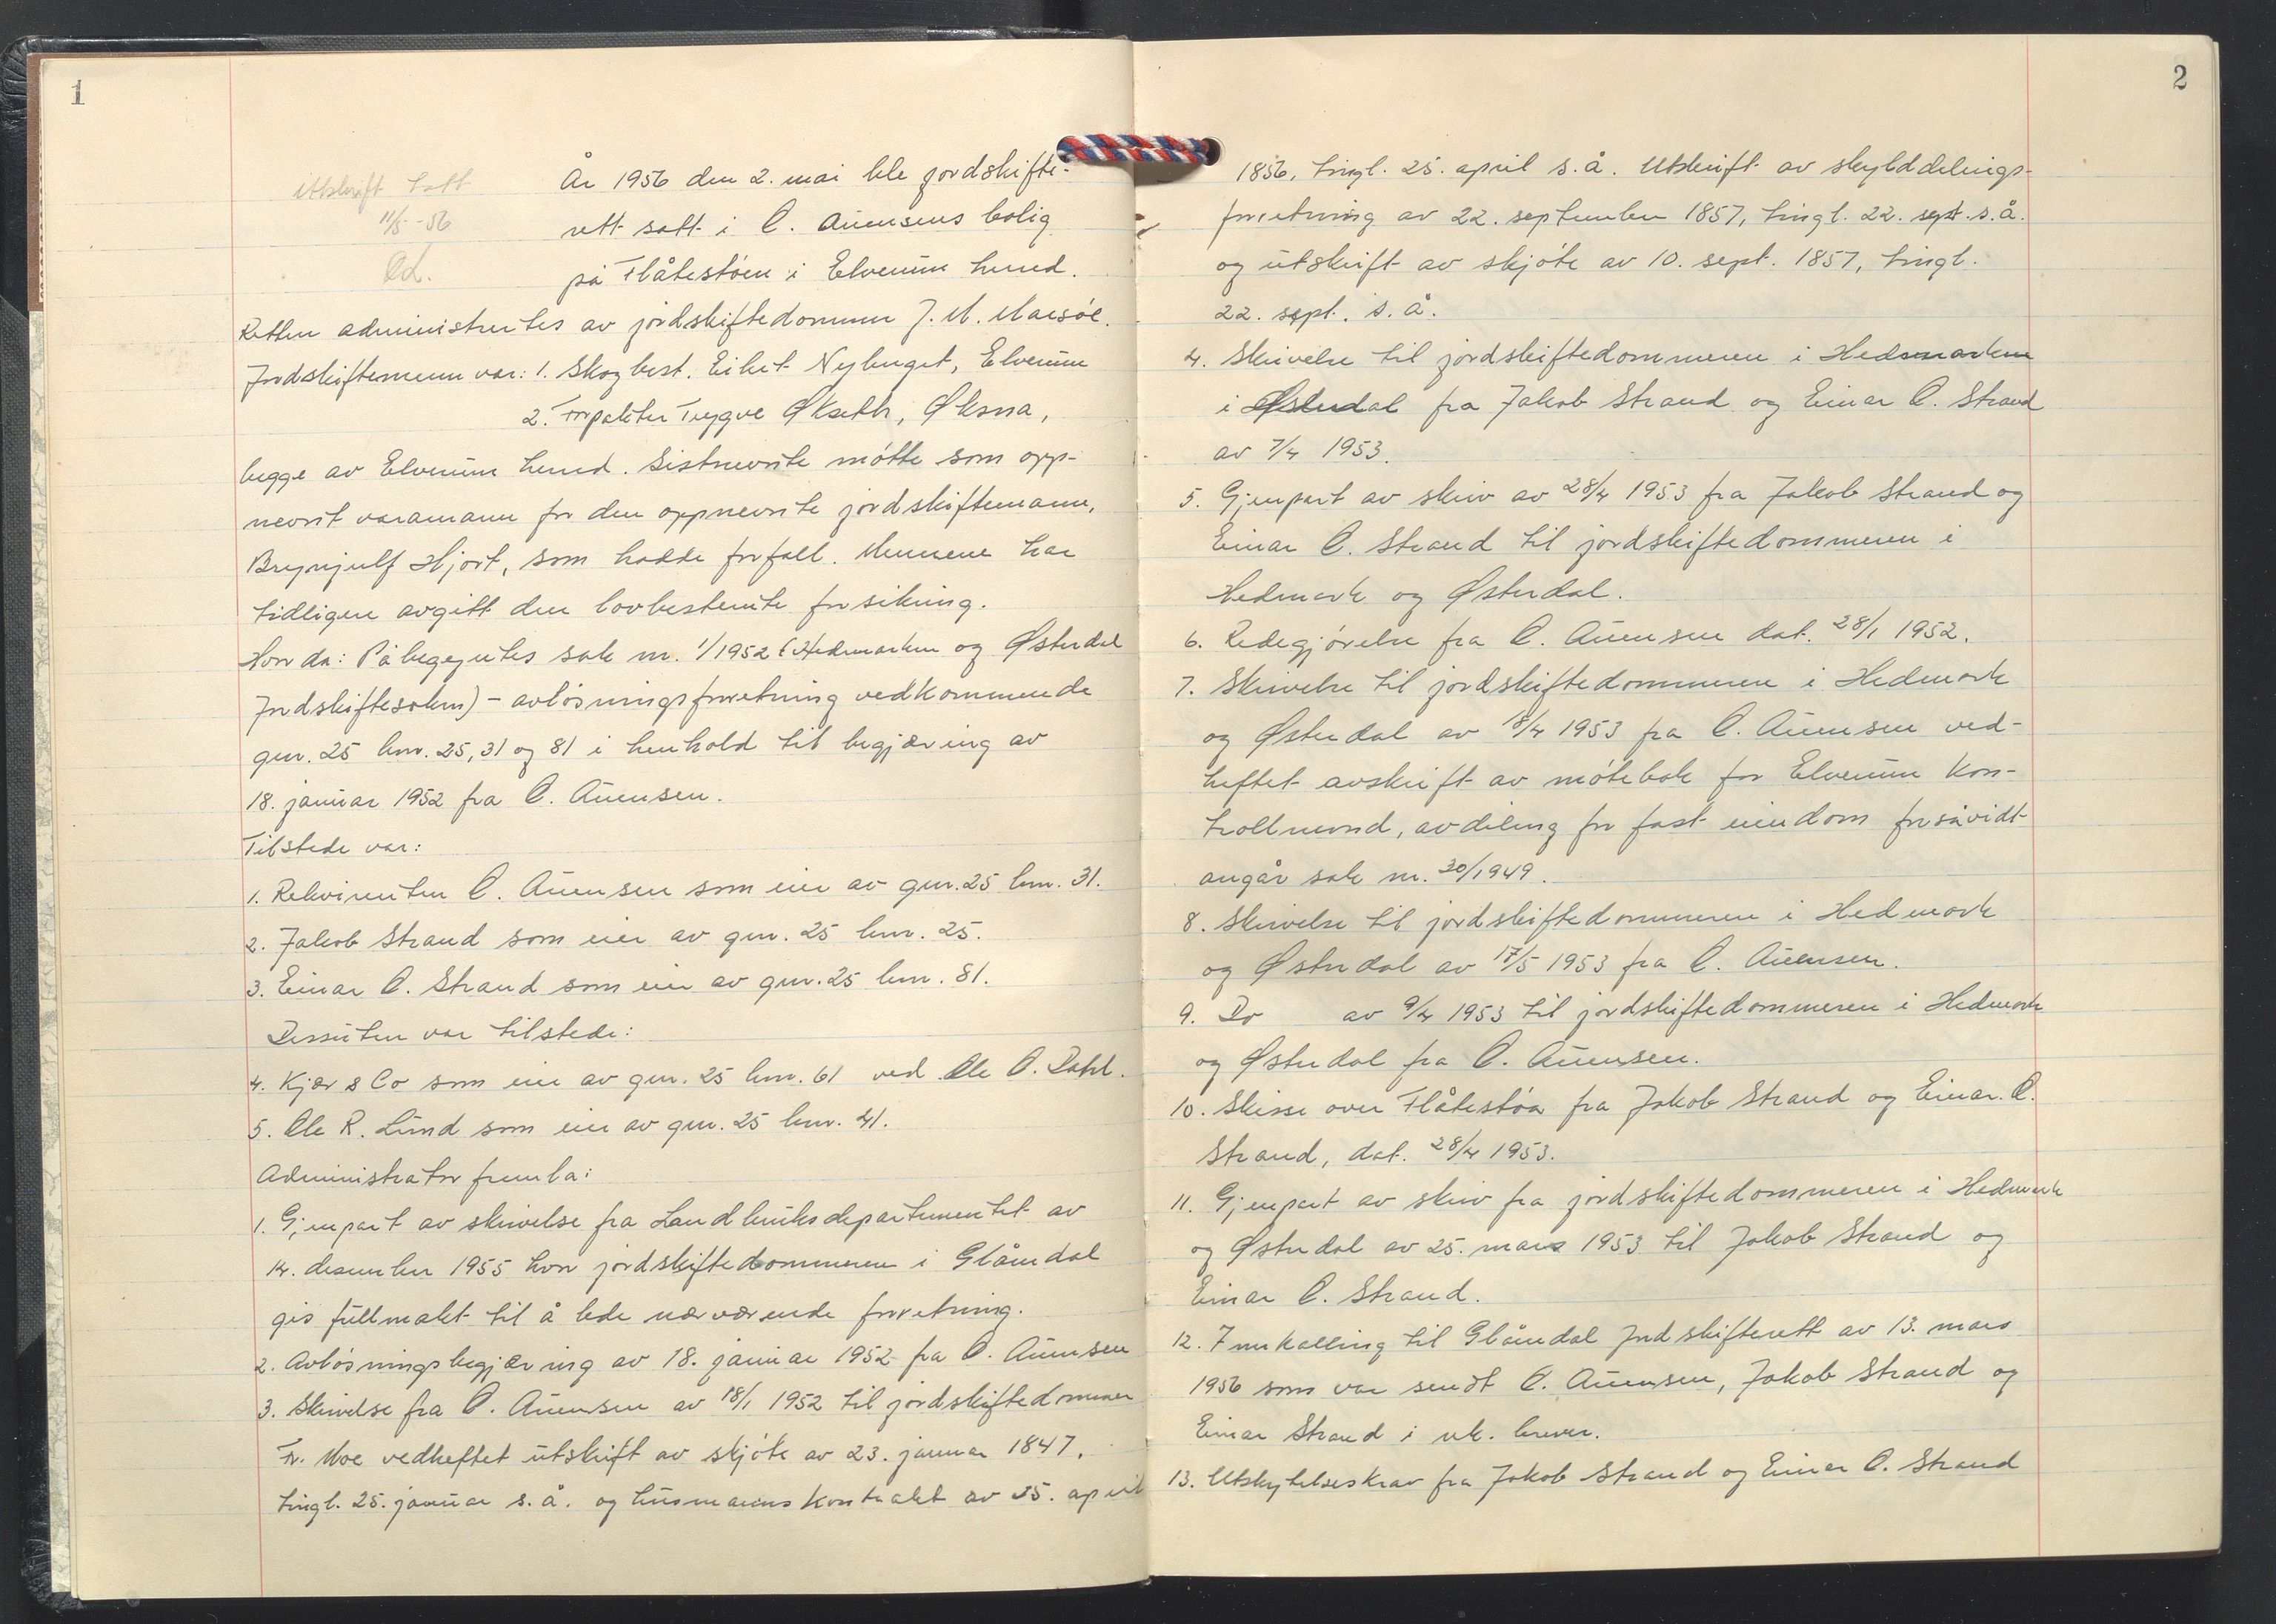 1
Utskrift tatt
11/5 - 56
År 1956 den 2. mai ble jordskifte-
rett satt i O. Auensens bolig
på Flåtestøen i Elverum herred.
Retten administrertes av jordskiftedommer J. M.
Jordskiftemenn var: 1. Skogbest. Eilert Nyhuget, Elverum
2. Forpakter Trygve Økseth, Øksna,
begge av Elverum herred. Sistnevnte møtte som opp-
nevnt varamann for den oppnevnte jordskiftemann,
Brynjulf Hjort, som hadde forfall. Mennene har
tidligere avgitt den lovbestemte forsikring.
Hvor da: Påbegyntes sak nr. 1/1952 (Hedmarken og Østerdal
Jordskiftesokn) - avløsningsforretning vedkommende
gnr. 25 bnr. 25, 31 og 81 i henhold til begjæring av
18. januar 1952 fra O. Auensen.
Tilstede var:
1. Rekvirenten O. Auensen som eier av gnr. 25 bnr. 31.
2. Jakob Strand som eier av gnr. 25 bnr. 25.
3. Einar O. Strand som eier av gnr. 25 bnr. 81.
Dessuten var tilstede:
4. Kjær & Co som eier av gnr. 25 bnr. 61 ved Ole O. Dahl.
5. Ole R. Lund som eier av gnr. 25 bnr. 41.
Administrator fremla:
1. Gjenpart av skrivelse fra Landbruksdepartementet av
14. desember 1955 hvor jordskiftedommeren i Glåmdal
gis fullmakt til å lede nærværende forretning.
2. Avløsningsbegjæring av 18. januar 1952 fra O. Auensen
3. Skrivelse fra O. Auensen av 18/1 1952 til jordskiftedommer
Fr. Moe vedheftet utskrift av skjøte av 23. januar 1847,
tingl. 25. januar s.å. og husmannskontrakt av 25. april
2
1856, tingl. 25. april s.å. Utskrift av skylddelings-
forretning av 22. september 1857, tingl. 22. sept. s.å.
og utskrift av skjøte av 10. sept. 1857, tingl.
22. sept. s. å.
4. Skrivelse til jordskiftedommeren i Hedmarken
i Østerdal fra Jakob Strand og Einar O. Strand
av 7/4 1953.
5. Gjenpart av skriv av 28/4 1953 fra Jakob Strand og
Einar O. Strand til jordskiftedommeren i
Hedmark og Østerdal.
6. Redegjørelse fra O. Auensen dat. 28/1 1952.
7. Skrivelse til jordskiftedommeren i Hedmark
og Østerdal av 18/4 1953 fra O. Auensen ved-
heftet avskrift av møtebok for Elverum kon-
trollnevnd, avdeling for fast eiendom forsåvidt
angår sak nr. 30/1949.
8. Skrivelse til jordskiftedommeren i Hedmark
og Østerdal av 17/5 1953 fra O. Auensen.
9. Do av 9/4 1953 til jordskiftedommeren i Hedmark
og Østerdal fra O. Auensen.
10. Skisse over Flåtestøa fra Jakob Strand og Einar O.
Strand, dat. 28/4 1953.
11. Gjenpart av skriv fra jordskiftedommeren i Hedmark
og Østerdal av 25. mars 1953 til Jakob Strand og
Einar O. Strand.
12. Innkalling til Glåmdal Jordskifterett av 13. mars
1956 som var sendt O. Auensen, Jakob Strand og
Einar Strand i rek. brever.
13. Utskytelseskrav fra Jakob Strand og Einar O. Strand